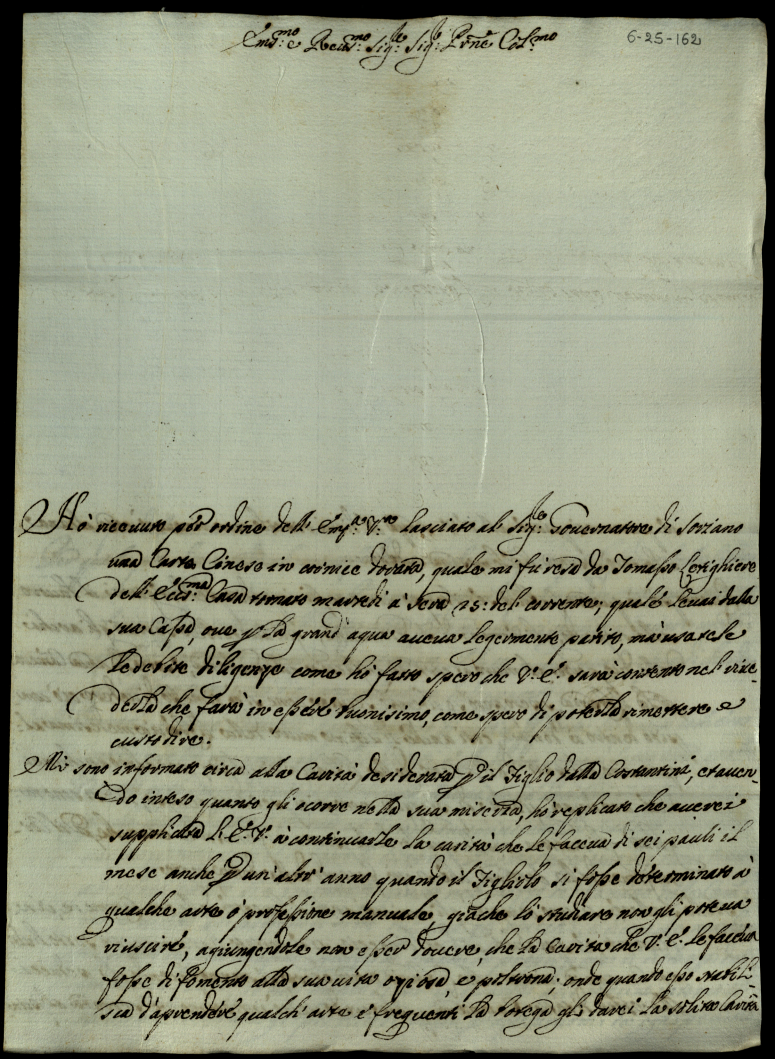 Em.mo e Reu.mo Sig.re Sig.re P.rone Col.mo
6-25-162
Hò riceuuto per ordine dell' Em.za V.ra lasciato al Sig.re Gouernatore di Soriano
una Carta Cinese in cornice dorata, quale mi fu resa da Tomasso
dell' Ecc.ma Casa tornato martedi à sera 25: del corrente; quale leuai dalla
sua Cassa, oue p la grand' aqua aueua legermente patito, mà usatele
le debite diligenze come hò fatto spero che V.E. sarà contento nel riue-
derla che farà in essere buonissimo, come spero di poterla rimettere e
custodire.
Mi sono informato circa alla Carità desiderata p il Figlio della Costantini, et auen-
do inteso quanto gli ocorre nella sua miseria, hò replicato che auerei
supplicata l'E.V. à continuarle la carità che le faceua di sei pauli il
mese anche p un' altr' anno quando il Figliolo si fosse determinato à
qualche arte ò professione manuale, giache lo studiare non gli poteua
riuscire, agiungendole non esser douere, che la Carità che V.E. le faceua
fosse di fomento alla sua uita oziosa e poltrona; onde quando esso stabili-
sca d'aprendere qualch' arte e frequenti la botega gli darei la solita Carità